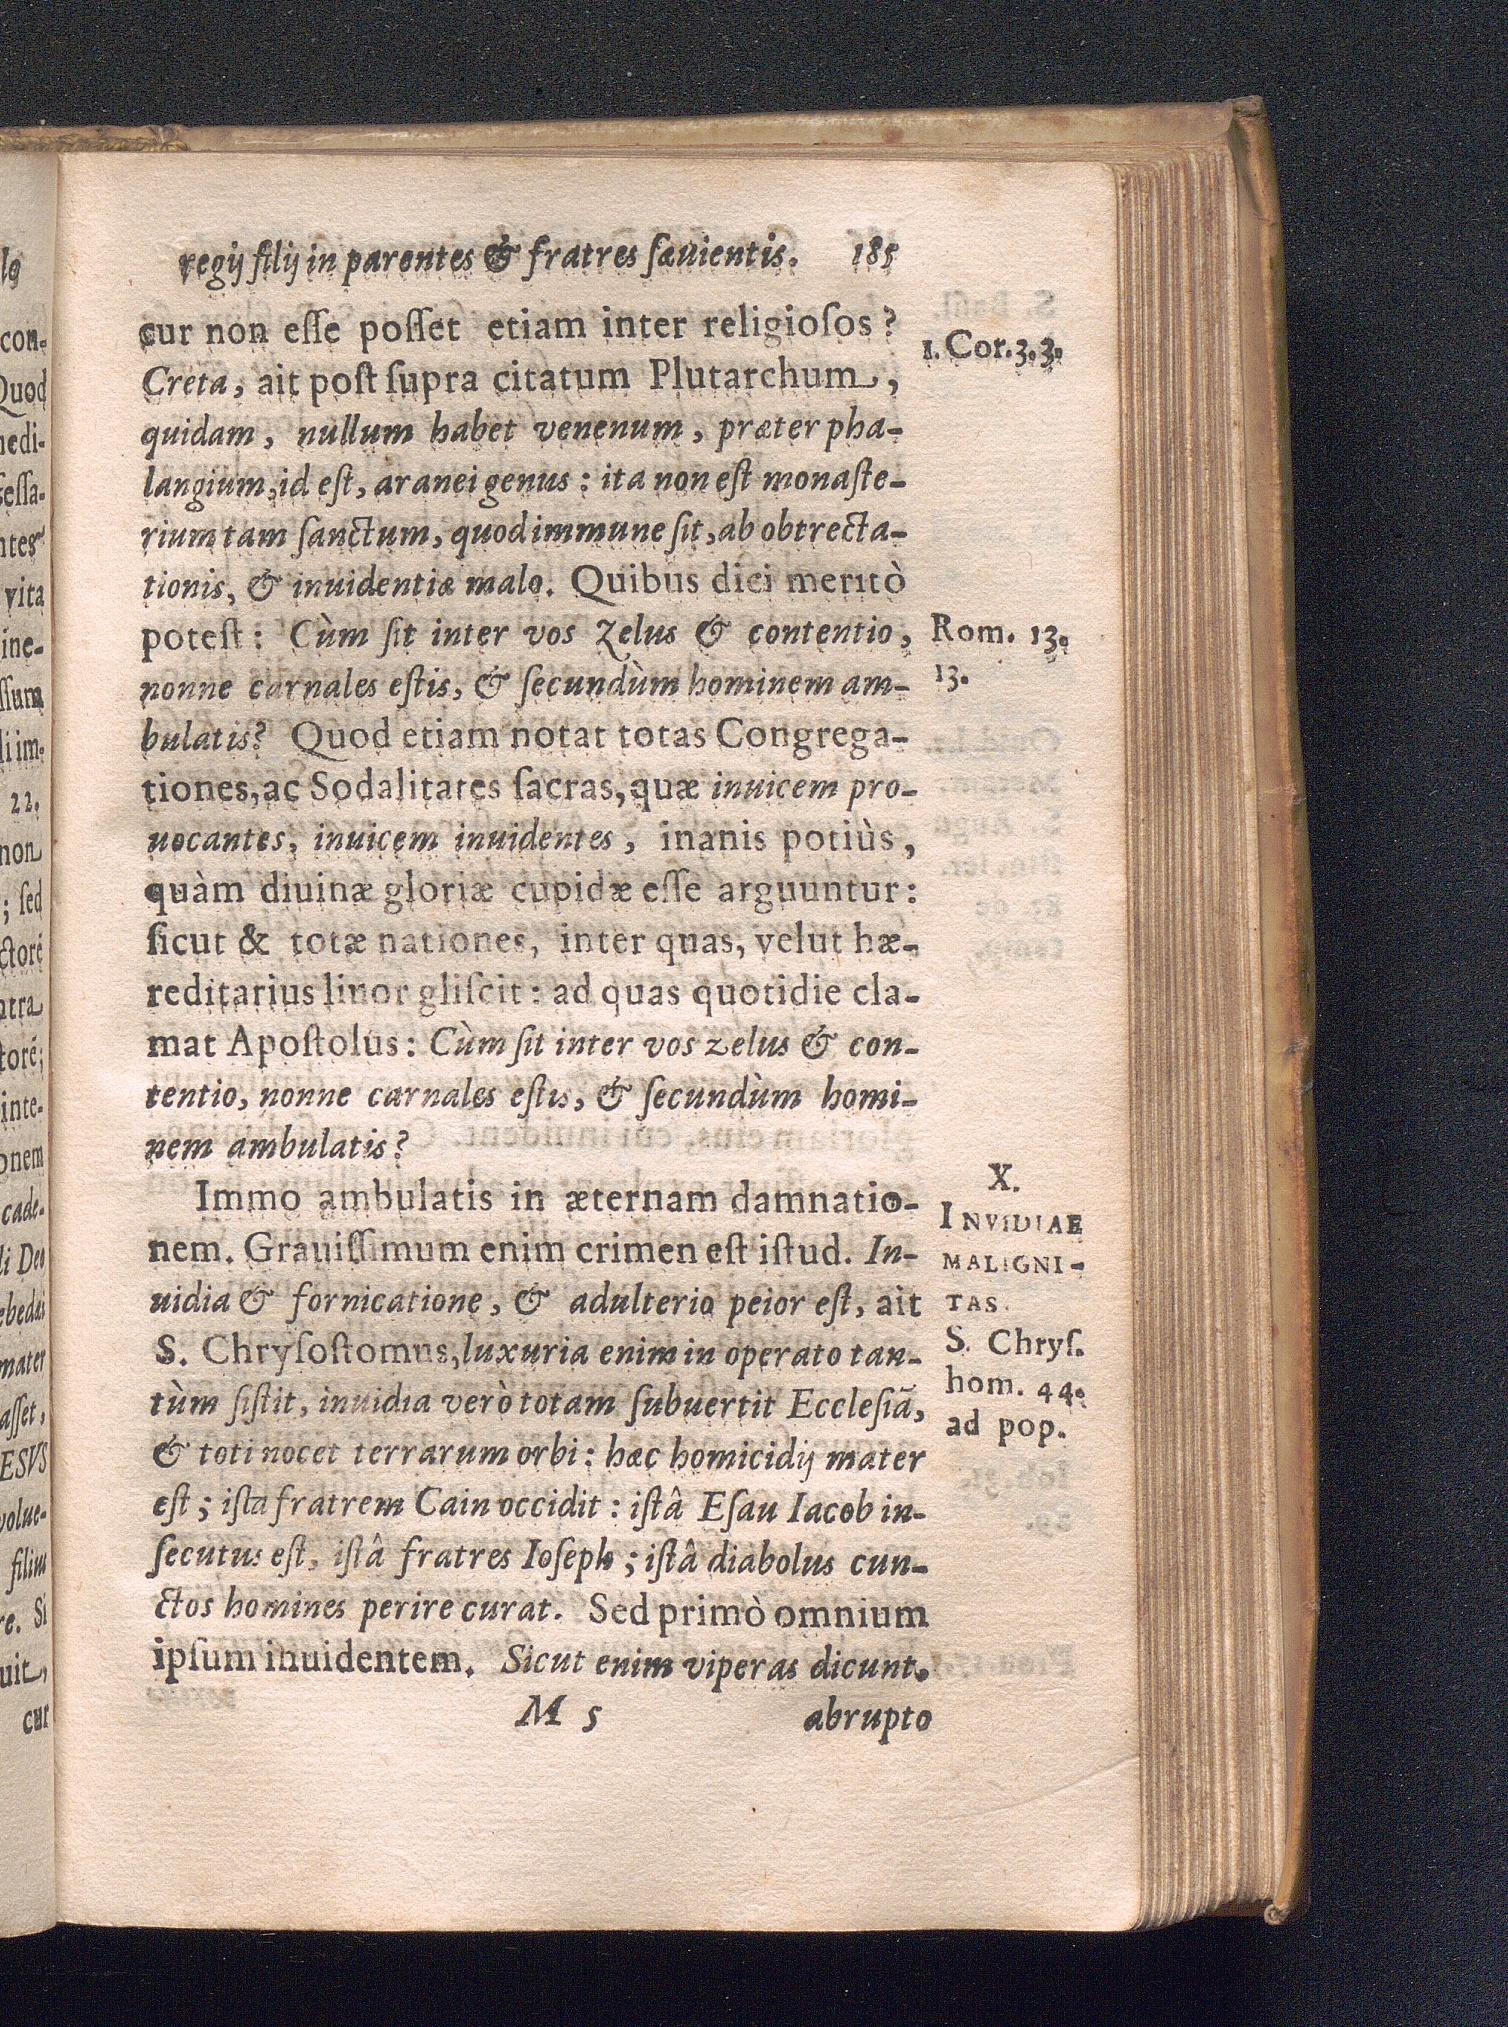 regij filij in parentes & fratres ſæuientis. 185
cur non eſſe poſſet etiam inter religioſos?
Creta, ait poſt ſupra citatum Plutarchum,
quidam, nullum habet venenum, præter pha-
langium, id eſt, aranei genus: ita non eſt monaſte-
rium tam ſanctum, quod immune ſit, ab obtrecta-
tionis, & inuidentiæ malo. Quibus dici meritò
poteſt: Cùm ſit inter vos Zelus & contentio,
nonne carnales eſtis, & ſecundùm hominem am-
bulatis? Quod etiam notat totas Congrega-
tiones, ac Sodalitates ſacras, quæ inuicem pro-
uocantes, inuicem inuidentes, inanis potiùs,
quàm diuinæ gloriæ cupidæ eſſe arguuntur:
ſicut & totæ nationes, inter quas, velut hæ-
reditarius liuor gliſcit: ad quas quotidie cla-
mat Apoſtolus: Cùm ſit inter vos zelus & con-
tentio, nonne carnales eſtis, & ſecundùm homi-
nem ambulatis?
Immo ambulatis in æternam damnatio-
nem. Grauiſſimum enim crimen eſt iſtud. In-
uidia & fornicatione, & adulterio peior eſt, ait
S. Chryſoſtomus, luxuria enim in operato tan-
tùm ſiſtit, inuidia verò totam ſubuertit Eccleſiã,
& toti nocet terrarum orbi: hæc homicidij mater
eſt; iſta fratrem Cain occidit: iſtâ Eſau Iacob in-
ſecutus eſt, iſtâ fratres Ioſeph; iſtâ diabolus cun-
ctos homines perire curat. Sed primò omnium
ipſum inuidentem. Sicut enim viperas dicunt.
M 5 abrupto
1. Cor. 3. 3.
Rom. 13.
13.
X.
INVIDIAE
MALIGNI-
TAS.
S. Chryſ.
hom. 44.
ad pop.